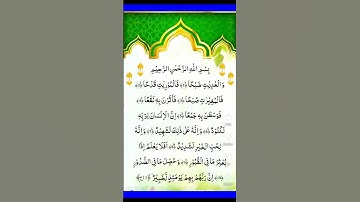 بِسْمِ اللّٰهِ الرَّحْمٰنِ الرَّحِيْمِ
وَالْعٰدِيٰتِ ضَبْحًا ﴿١﴾ فَالْمُوْرِيٰتِ قَدْحًا ﴿٢﴾
فَالْمُغِيْرٰتِ صُبْحًا ﴿٣﴾ فَاَثَرْنَ بِهٖ نَقْعًا ﴿٤﴾
فَوَسَطْنَ بِهٖ جَمْعًا ﴿٥﴾ اِنَّ الْاِنْسَانَ لِرَبِّهٖ
لَكَنُوْدٌ ﴿٦﴾ وَاِنَّهٗ عَلٰى ذٰلِكَ لَشَهِيْدٌ ﴿٧﴾ وَاِنَّهٗ
لِحُبِّ الْخَيْرِ لَشَدِيْدٌ ﴿٨﴾ اَفَلَا يَعْلَمُ اِذَا
بُعْثِرَ مَا فِى الْقُبُوْرِ ﴿٩﴾ وَحُصِّلَ مَا فِى الصُّدُوْرِ
﴿١٠﴾ اِنَّ رَبَّهُمْ بِهِمْ يَوْمَئِذٍ لَّخَبِيْرٌ ﴿١١﴾